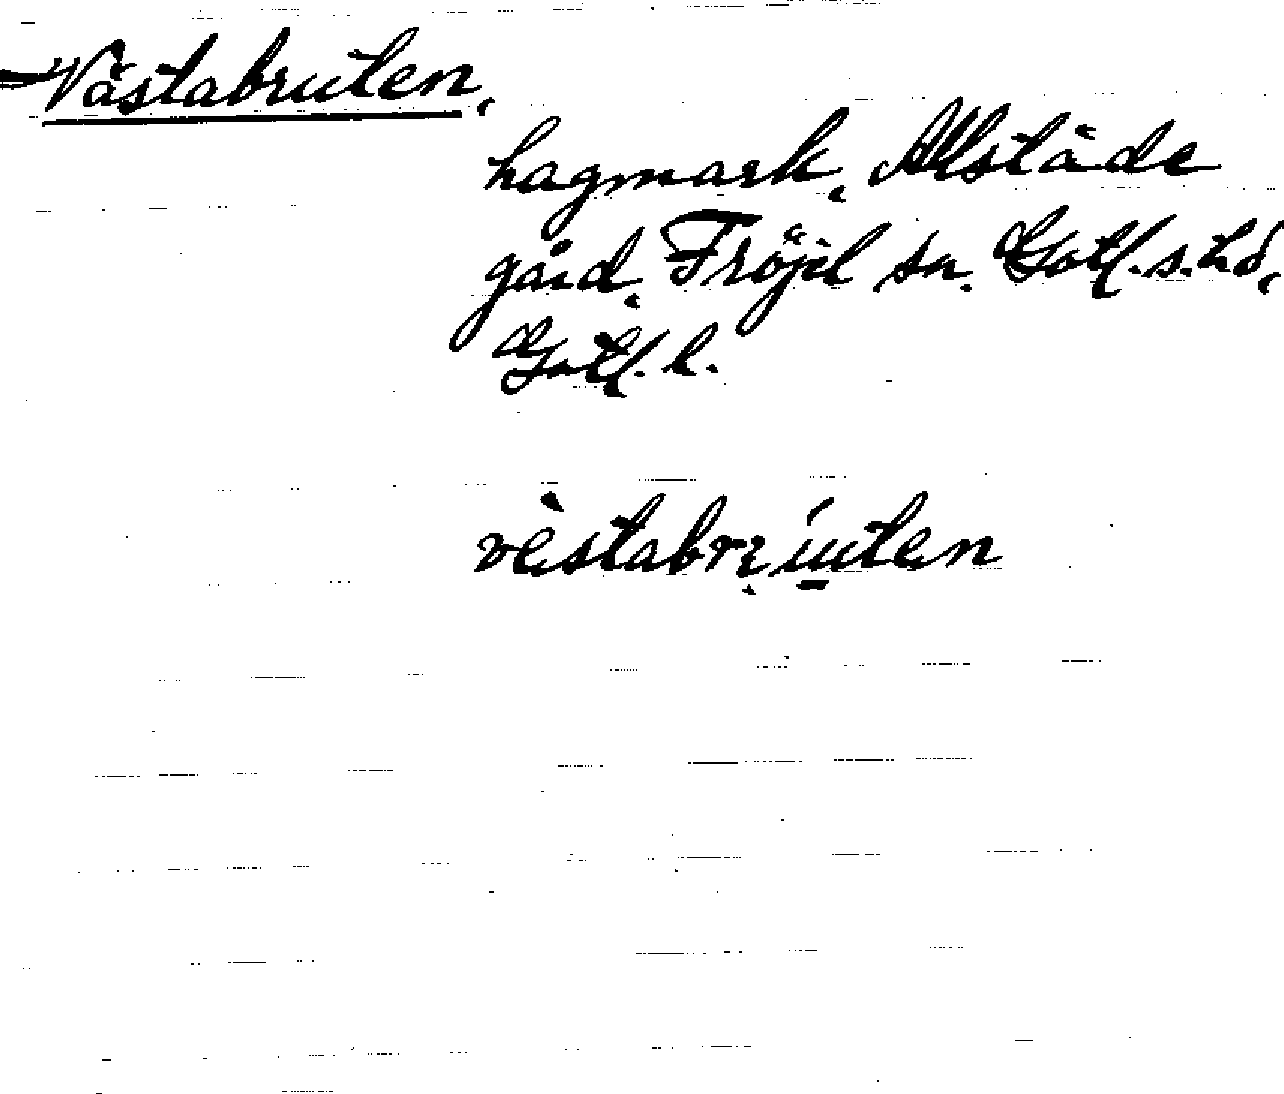 Västabruten,
hagmark, Allstäde
gård, Fröjel sn. Gotl. s. hd,
Gotl. l.
vèstabrúten